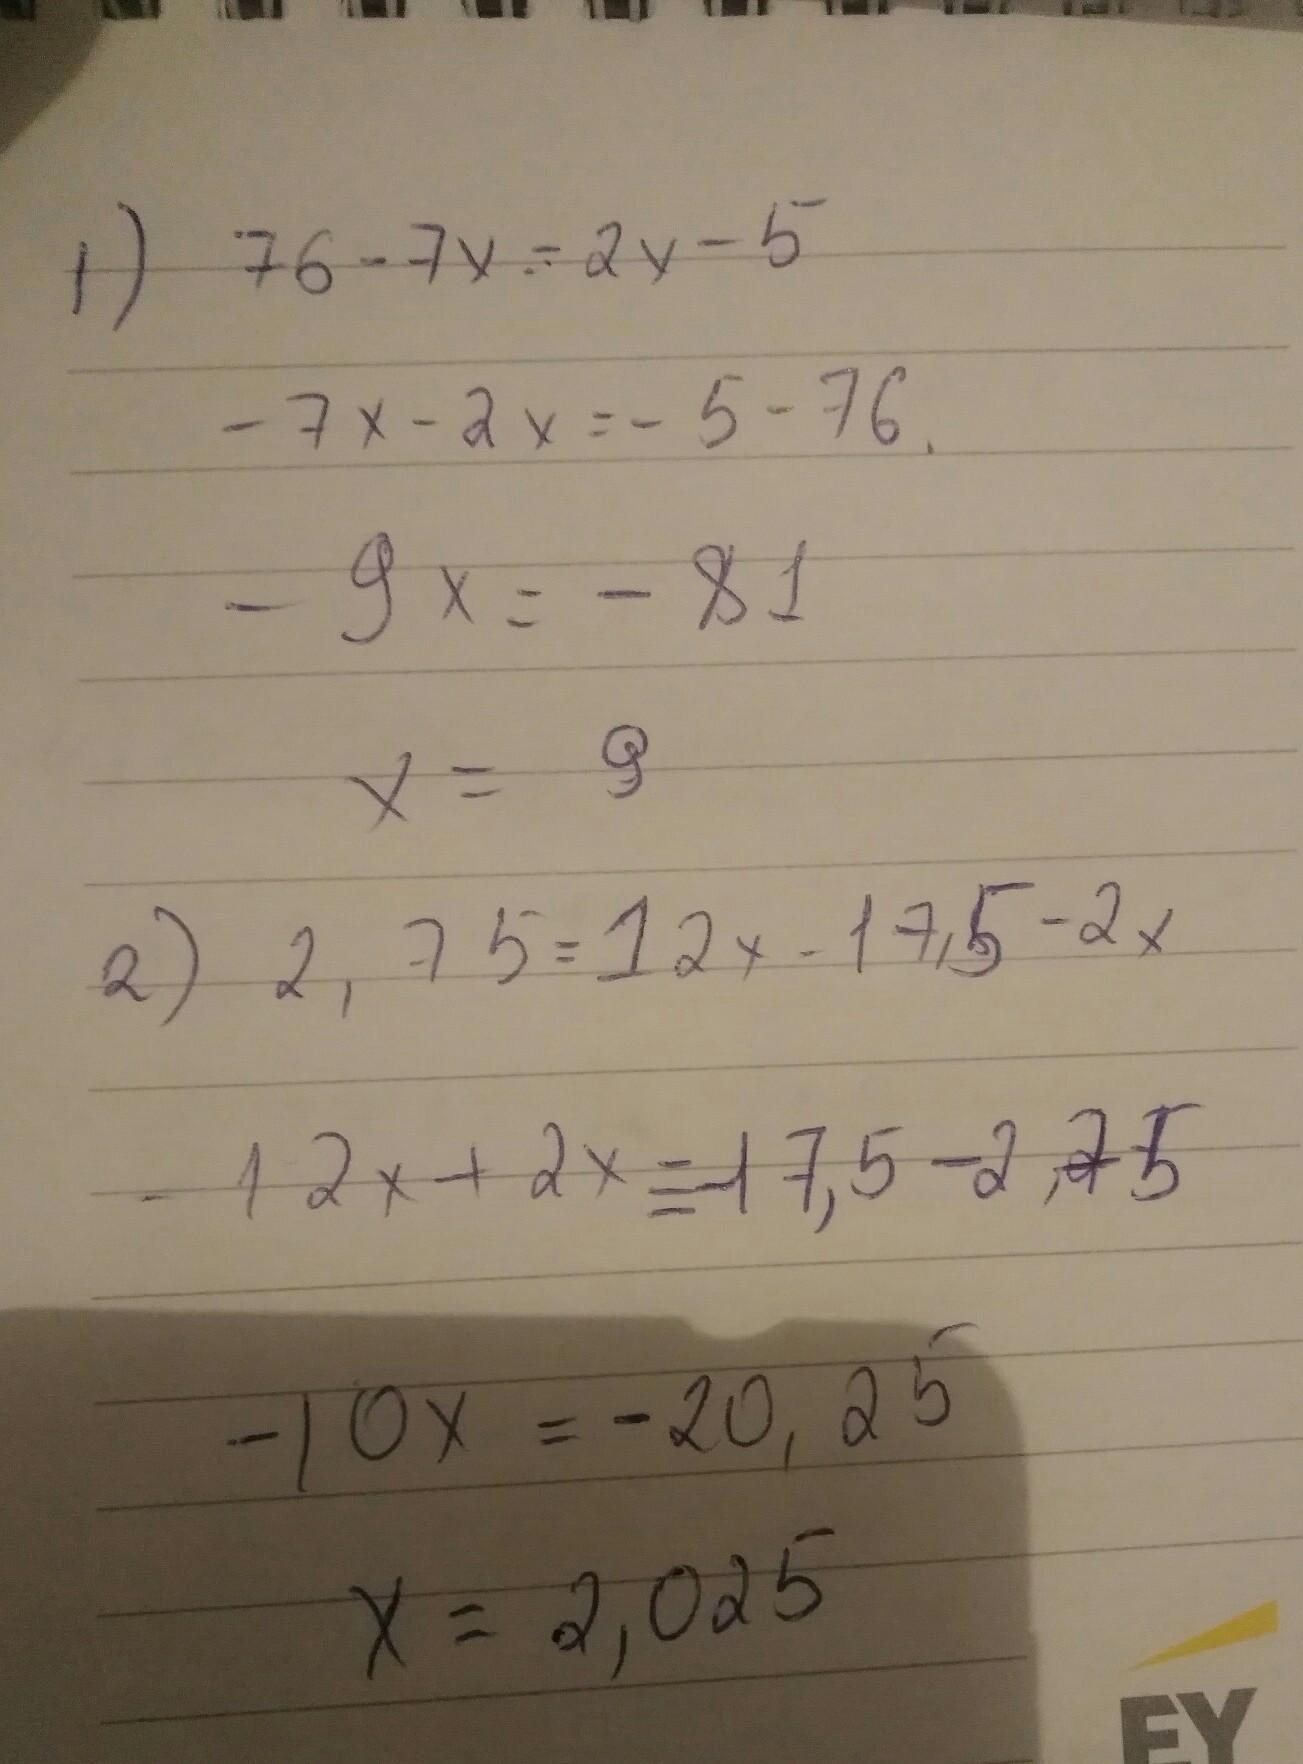 1) 76-7x=2x-5
-7x-2x=-5-76.
-9x=-81
x=9
2) 2,75=12x-17,5-2x
-12x+2x=-17,5-2,75
-10x=-20,25
x=2,025
EY